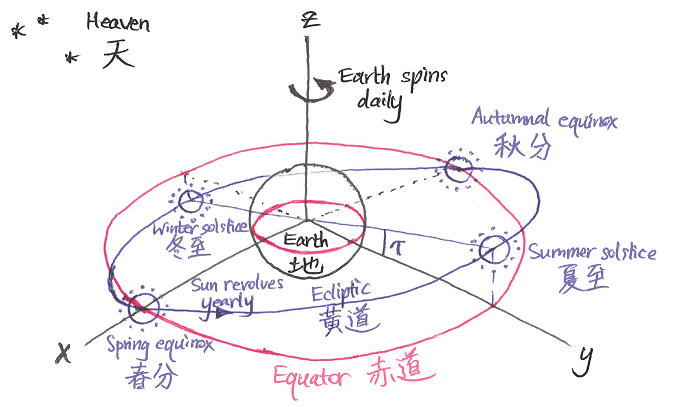 Heaven
天
z
Earth spins
daily
Autumnal equinox
秋分
Winter solstice
冬至
Earth
地
τ
Summer solstice
夏至
Sun revolves
yearly
Ecliptic
黄道
x
Spring equinox
春分
y
Equator 赤道